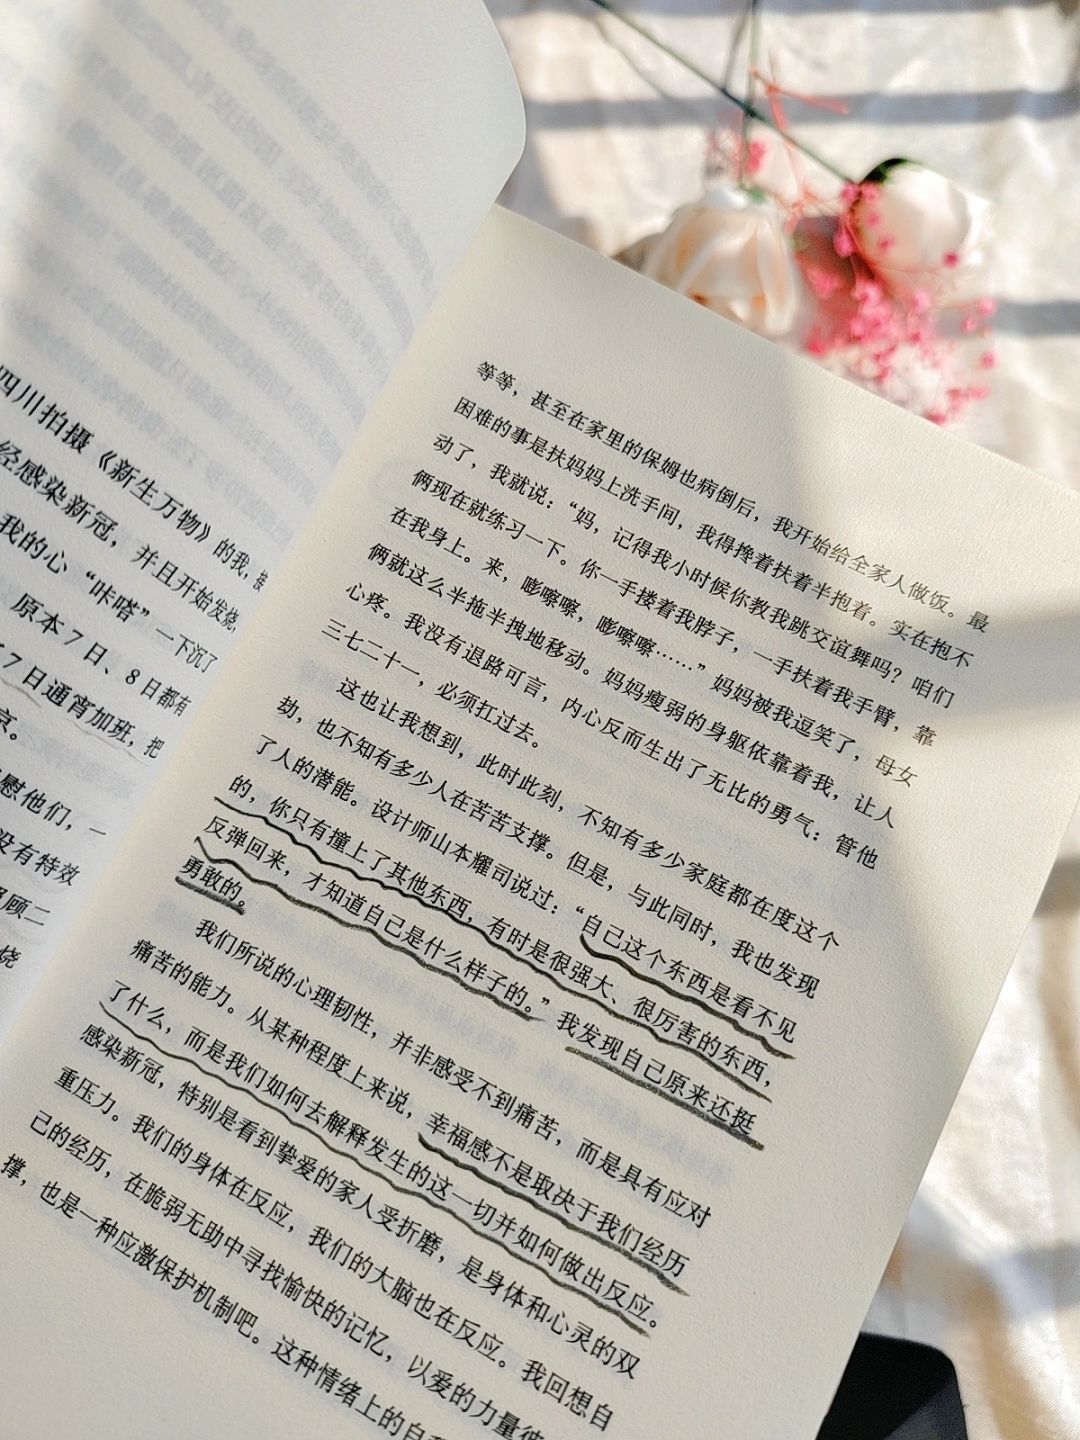 四川拍摄《新生万物》的我，接
经感染新冠，并且开始发烧，
我的心“咔嗒”一下沉了
原本7日、8日都有
7日通宵加班，把
京。
慰他们，一
没有特效
顾二
烧
等等，甚至在家里的保姆也病倒后，我开始给全家人做饭。最
困难的事是扶妈妈上洗手间，我得搀着扶着半抱着。实在抱不
动了，我就说：“妈，记得我小时候你教我跳交谊舞吗？咱们
俩现在就练习一下。你一手搂着我脖子，一手扶着我手臂，靠
在我身上。来，嘭嚓嚓，嘭嚓嚓……”妈妈被我逗笑了，母女
俩就这么半拖半拽地移动。妈妈瘦弱的身躯依靠着我，让人
心疼。我没有退路可言，内心反而生出了无比的勇气：管他
三七二十一，必须扛过去。
这也让我想到，此时此刻，不知有多少家庭都在度这个
劫，也不知有多少人在苦苦支撑。但是，与此同时，我也发现
了人的潜能。设计师山本耀司说过：“自己这个东西是看不见
的，你只有撞上了其他东西，有时是很强大、很厉害的东西，
反弹回来，才知道自己是什么样子的。”我发现自己原来还挺
勇敢的。
我们所说的心理韧性，并非感受不到痛苦，而是具有应对
痛苦的能力。从某种程度上来说，幸福感不是取决于我们经历
了什么，而是我们如何去解释发生的这一切并如何做出反应。
感染新冠，特别是看到挚爱的家人受折磨，是身体和心灵的双
重压力。我们的身体在反应，我们的大脑也在反应。我回想自
己的经历，在脆弱无助中寻找愉快的记忆，以爱的力量彼
撑，也是一种应激保护机制吧。这种情绪上的自